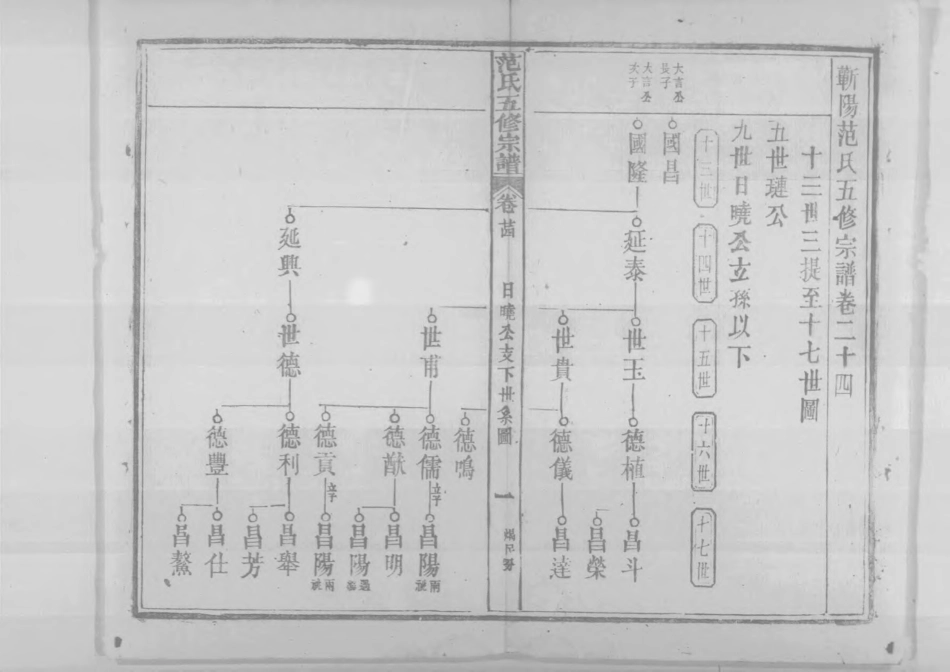 蘄陽范氏五修宗譜卷二十四
十三世三提至十七世圖
五世璉公
九世日曉公玄孫以下
十三世
十四世
十五世
十六世
十七世
大言公長子
國昌
大言公次子
國隆
延泰
世玉
德植
昌斗
昌榮
世貴
德儀
昌達
范氏五修宗譜
卷廿四
日曉公支下世系圖
一
德鳴
世甫
德儒
立子
昌陽
兩祧
德猷
昌明
昌陽
德貢
立子
昌陽
兩祧
延興
世德
德利
昌舉
昌芳
德豐
昌仕
昌鰲